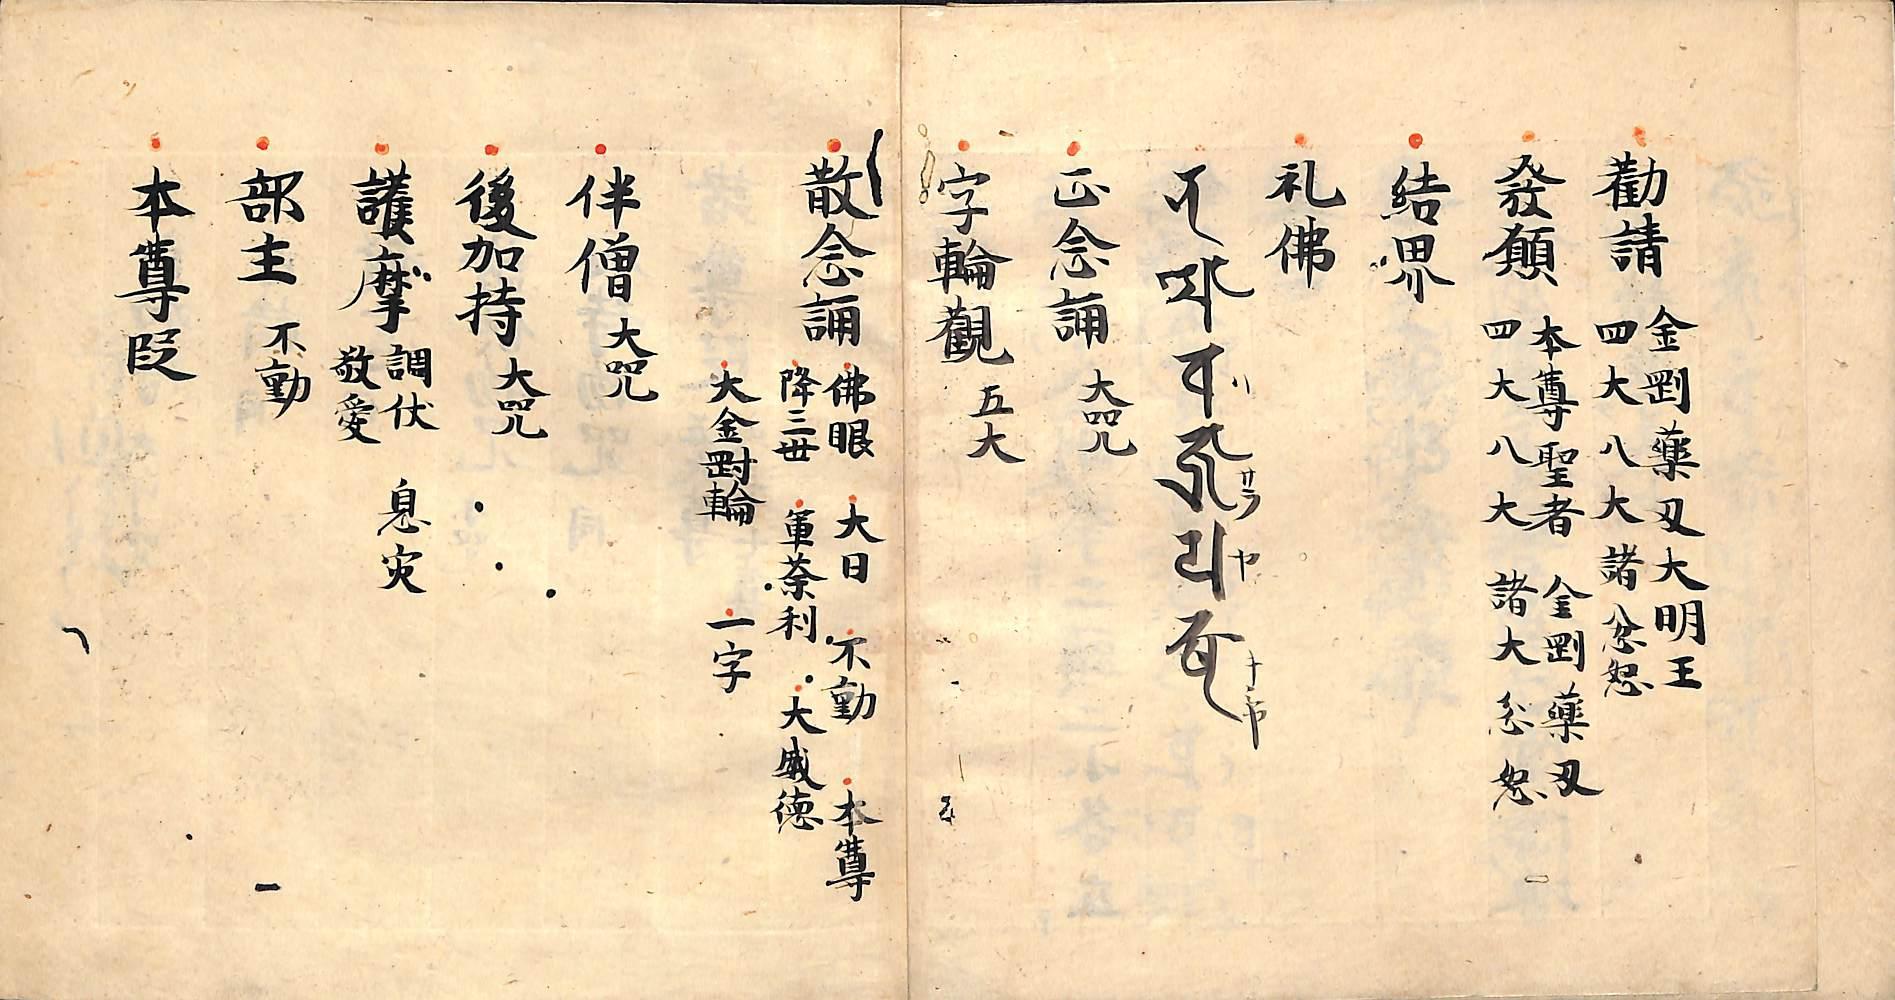 勸請 金剛藥叉大明王
四大八大諸忿怒
發願 本尊聖者 金剛藥叉
四大八大 諸大忿怒
結界
礼佛
ハ
サラ
ヤ
正念誦 大咒
字輪觀 五大
散念誦 佛眼 大日 不動 本尊
降三世 軍荼利 大威德
大金剛輪 一字
伴僧 大咒
後加持 大咒
護摩 調伏 息灾
敬愛
部主 不動
本尊段